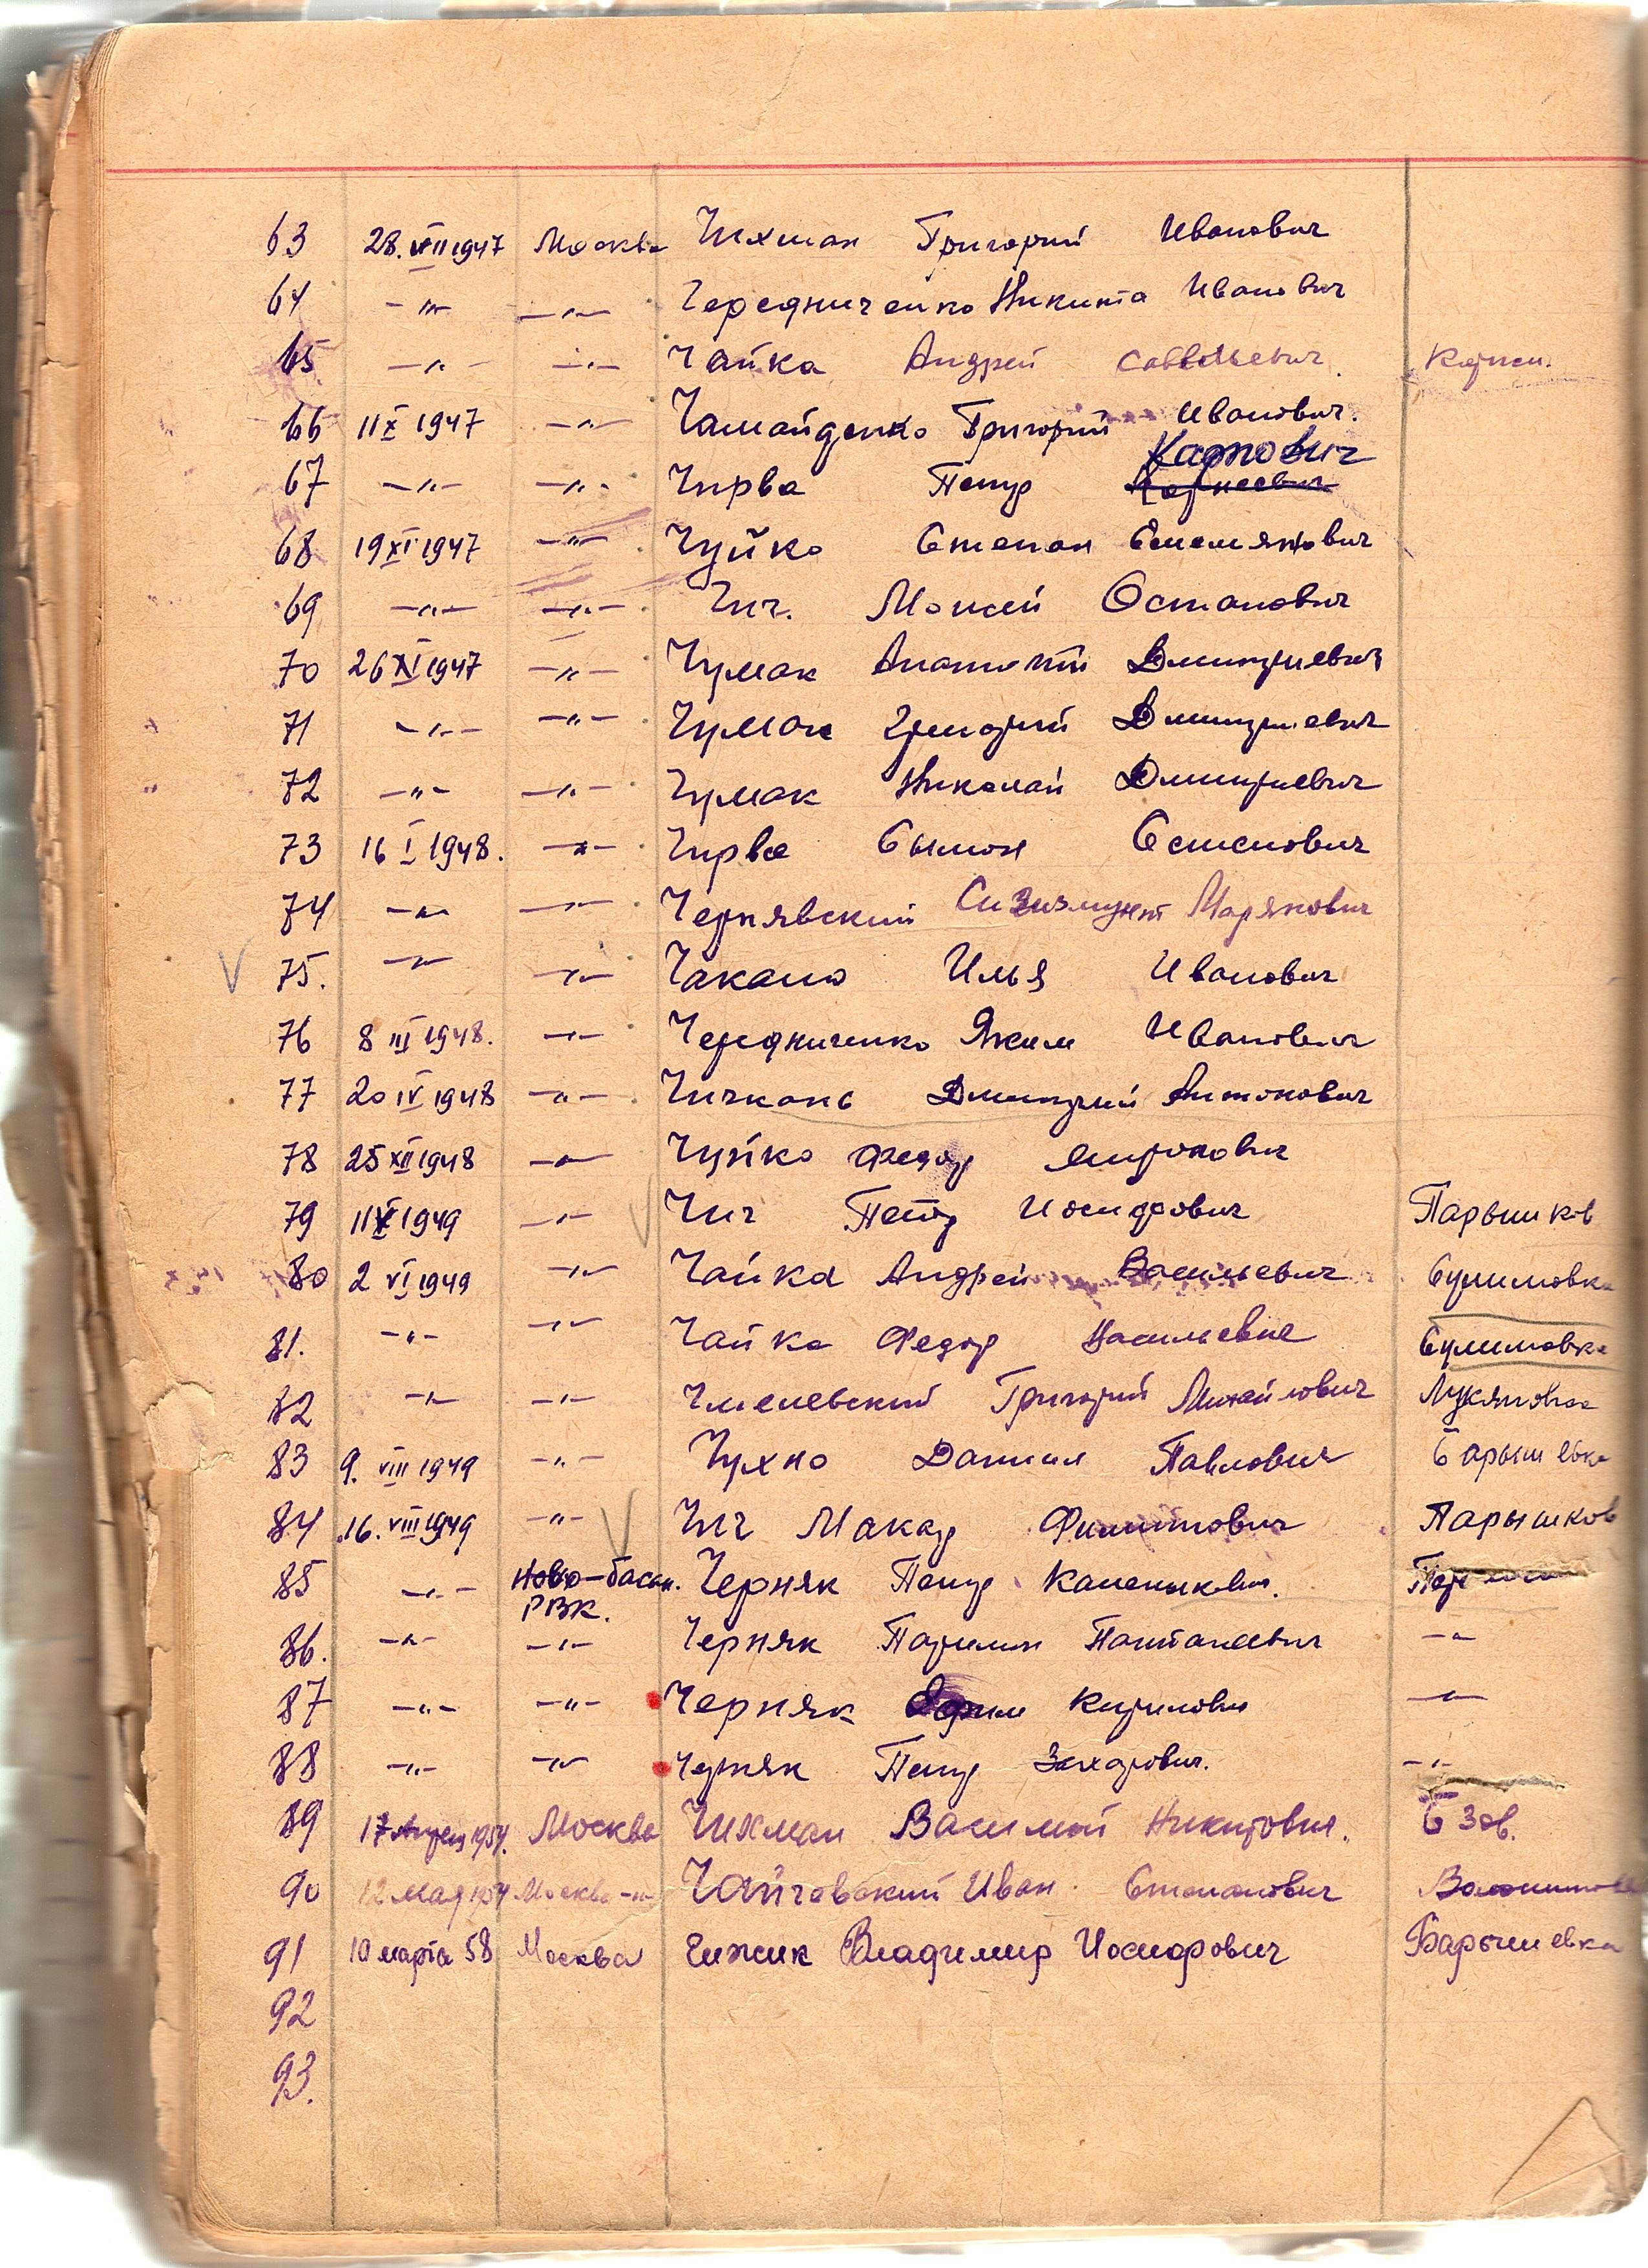 63 28.VIII 1947 Москва Чихман Григорий Иванович
64 -"- -"- Чередниченко Никита Иванович
65 -"- -"- Чайка Андрей Савельевич
66 11 X 1947 -"- Чамайденко Григорий Иванович.
Карпович
67 -"- -"- Чирва Петр Корнеевич
68 19 XI 1947 -"- Чуйко Степан Емельянович
69 -"- -"- Чич. Моисей Остапович
70 26 XI 1947 -"- Чумак Анатолий Дмитриевич
71 -"- -"- Чумак Григорий Дмитриевич
72 -"- -"- Чумак Николай Дмитриевич
73 16 I 1948. -"- Чирва Семион Остапович
74 -"- -"- Чернявский Сизизмунт Марянович
75. -"- -"- Чакало Илья Иванович
76 8 III 1948. -"- Чередниченко Яким Иванович
77 20 IV 1948 -"- Чичкань Дмитрий Антонович
78 25 XII 1948 -"- Чуйко Федор Миронович
79 11 1949 -"- Чич Петр Иосифович Парышков
80 2 VI 1949 -"- Чайка Андрей Васильевич Сулимовка
81. -"- -"- Чайка Федор Васильевич Сулимовка
82 -"- -"- Чмелевский Григорий Михайлович Лукяновка
83 9. VIII 1949 -"- Чухно Даниил Павлович Барышевка
84 16. VIII 1949 -"- Чич Макар Филиппович Парышков
85 -"- Ново-басан. Черняк Петр
РВК.
86. -"- -"- Черняк Пантелеевич -"-
87 -"- -"- Черняк Ефим Кирилович -"-
88 -"- -"- Черняк Петр Захарович. -"-
89 17 1954. Москва Чихман Василий Никитович.
90 12 мая 1954 Москва -"- Чайчевский Иван Степанович
91 10 марта 58 Москва Чижик Владимир Иосифович Барышевка
92
93.